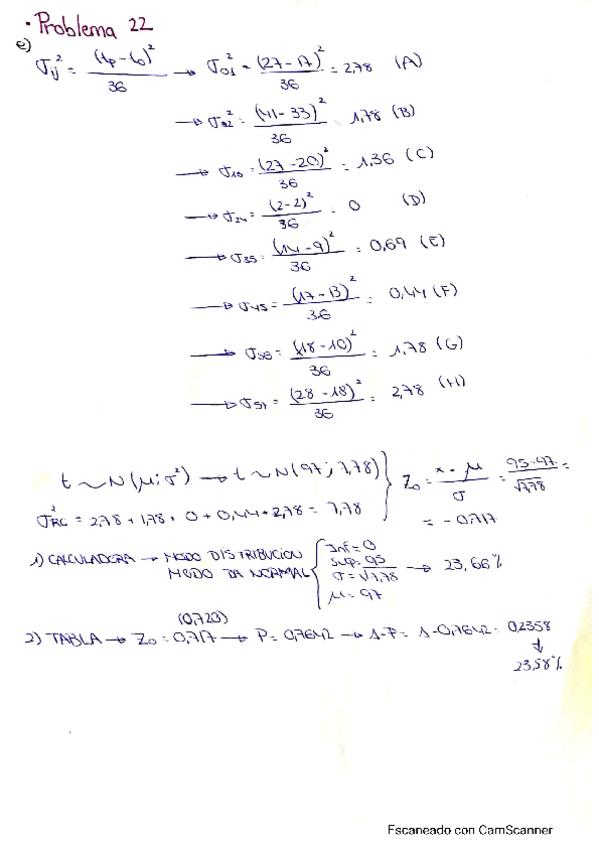 · Problema 22
e) σij² = (tp-to)² / 36 → σ01² = (27-17)² / 36 = 2,78 (A)
→ σ12² = (41-33)² / 36 = 1,78 (B)
→ σ13 = (27-20)² / 36 = 1,36 (C)
→ σ24 = (2-2)² / 36 = 0 (D)
→ σ35 = (14-9)² / 36 = 0,69 (E)
→ σ45 = (17-13)² / 36 = 0,44 (F)
→ (18-10)² / 36 = 1,78 (G)
→ σ57 = (28-18)² / 36 = 2,78 (H)
t ~ N(μ; σ²) → t ~ N(97; 7,78) } Z0 = x-μ / σ = 95-97 / √7,78 =
σRC² = 2,78 + 1,78 + 0 + 0,44 + 2,78 = 7,78
= -0,717
1) CALCULADORA → MODO DISTRIBUCION
MODO DA NORMAL { Inf = 0
Sup = 95
σ = √7,78
μ = 97 → 23,66%
(0,720)
2) TABLA → Z0 = 0,717 → P = 0,7642 → 1-P = 1-0,7642 = 0,2358
↓
23,58%
Escaneado con CamScanner